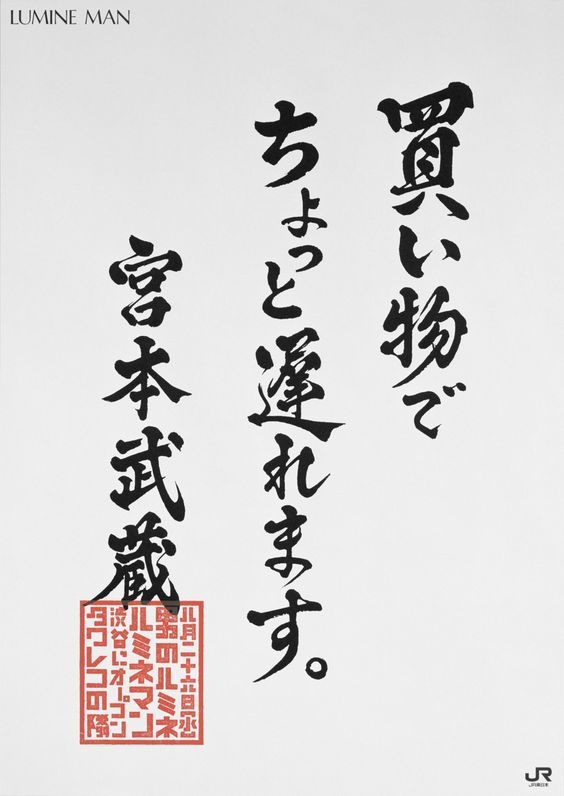 LUMINE MAN
買い物で
ちょっと遅れます。
宮本武蔵
八月二十六日(水)
男のルミネ
ルミネマン
渋谷にオープン
タワレコの隣
JR
JR東日本